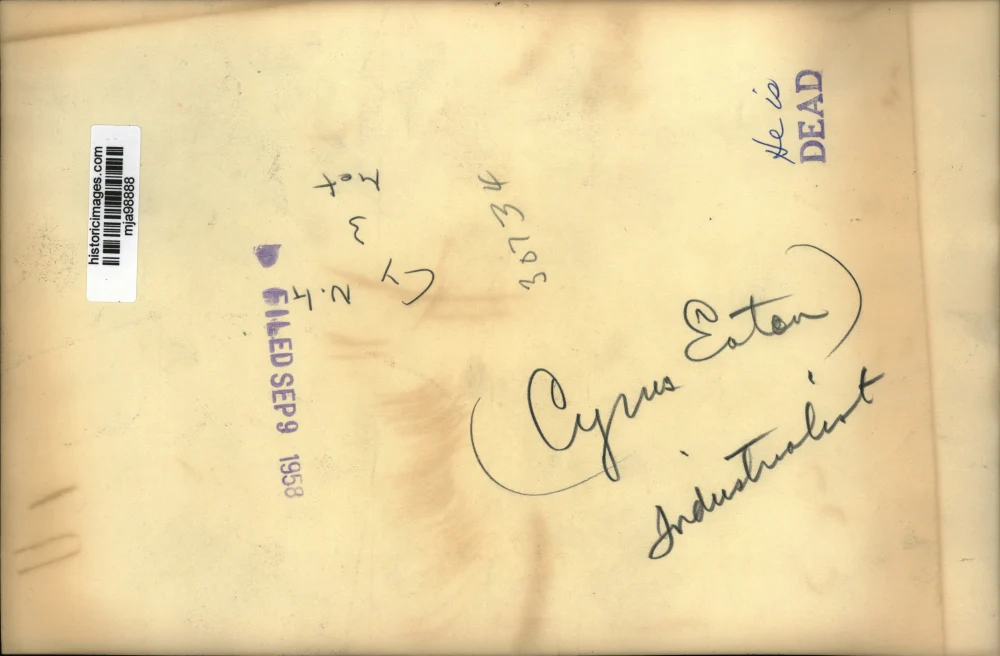 historicimages.com
mja98888
He is
DEAD
36734
FILED SEP 9 1958
(Cyrus Eaton)
Industrialist